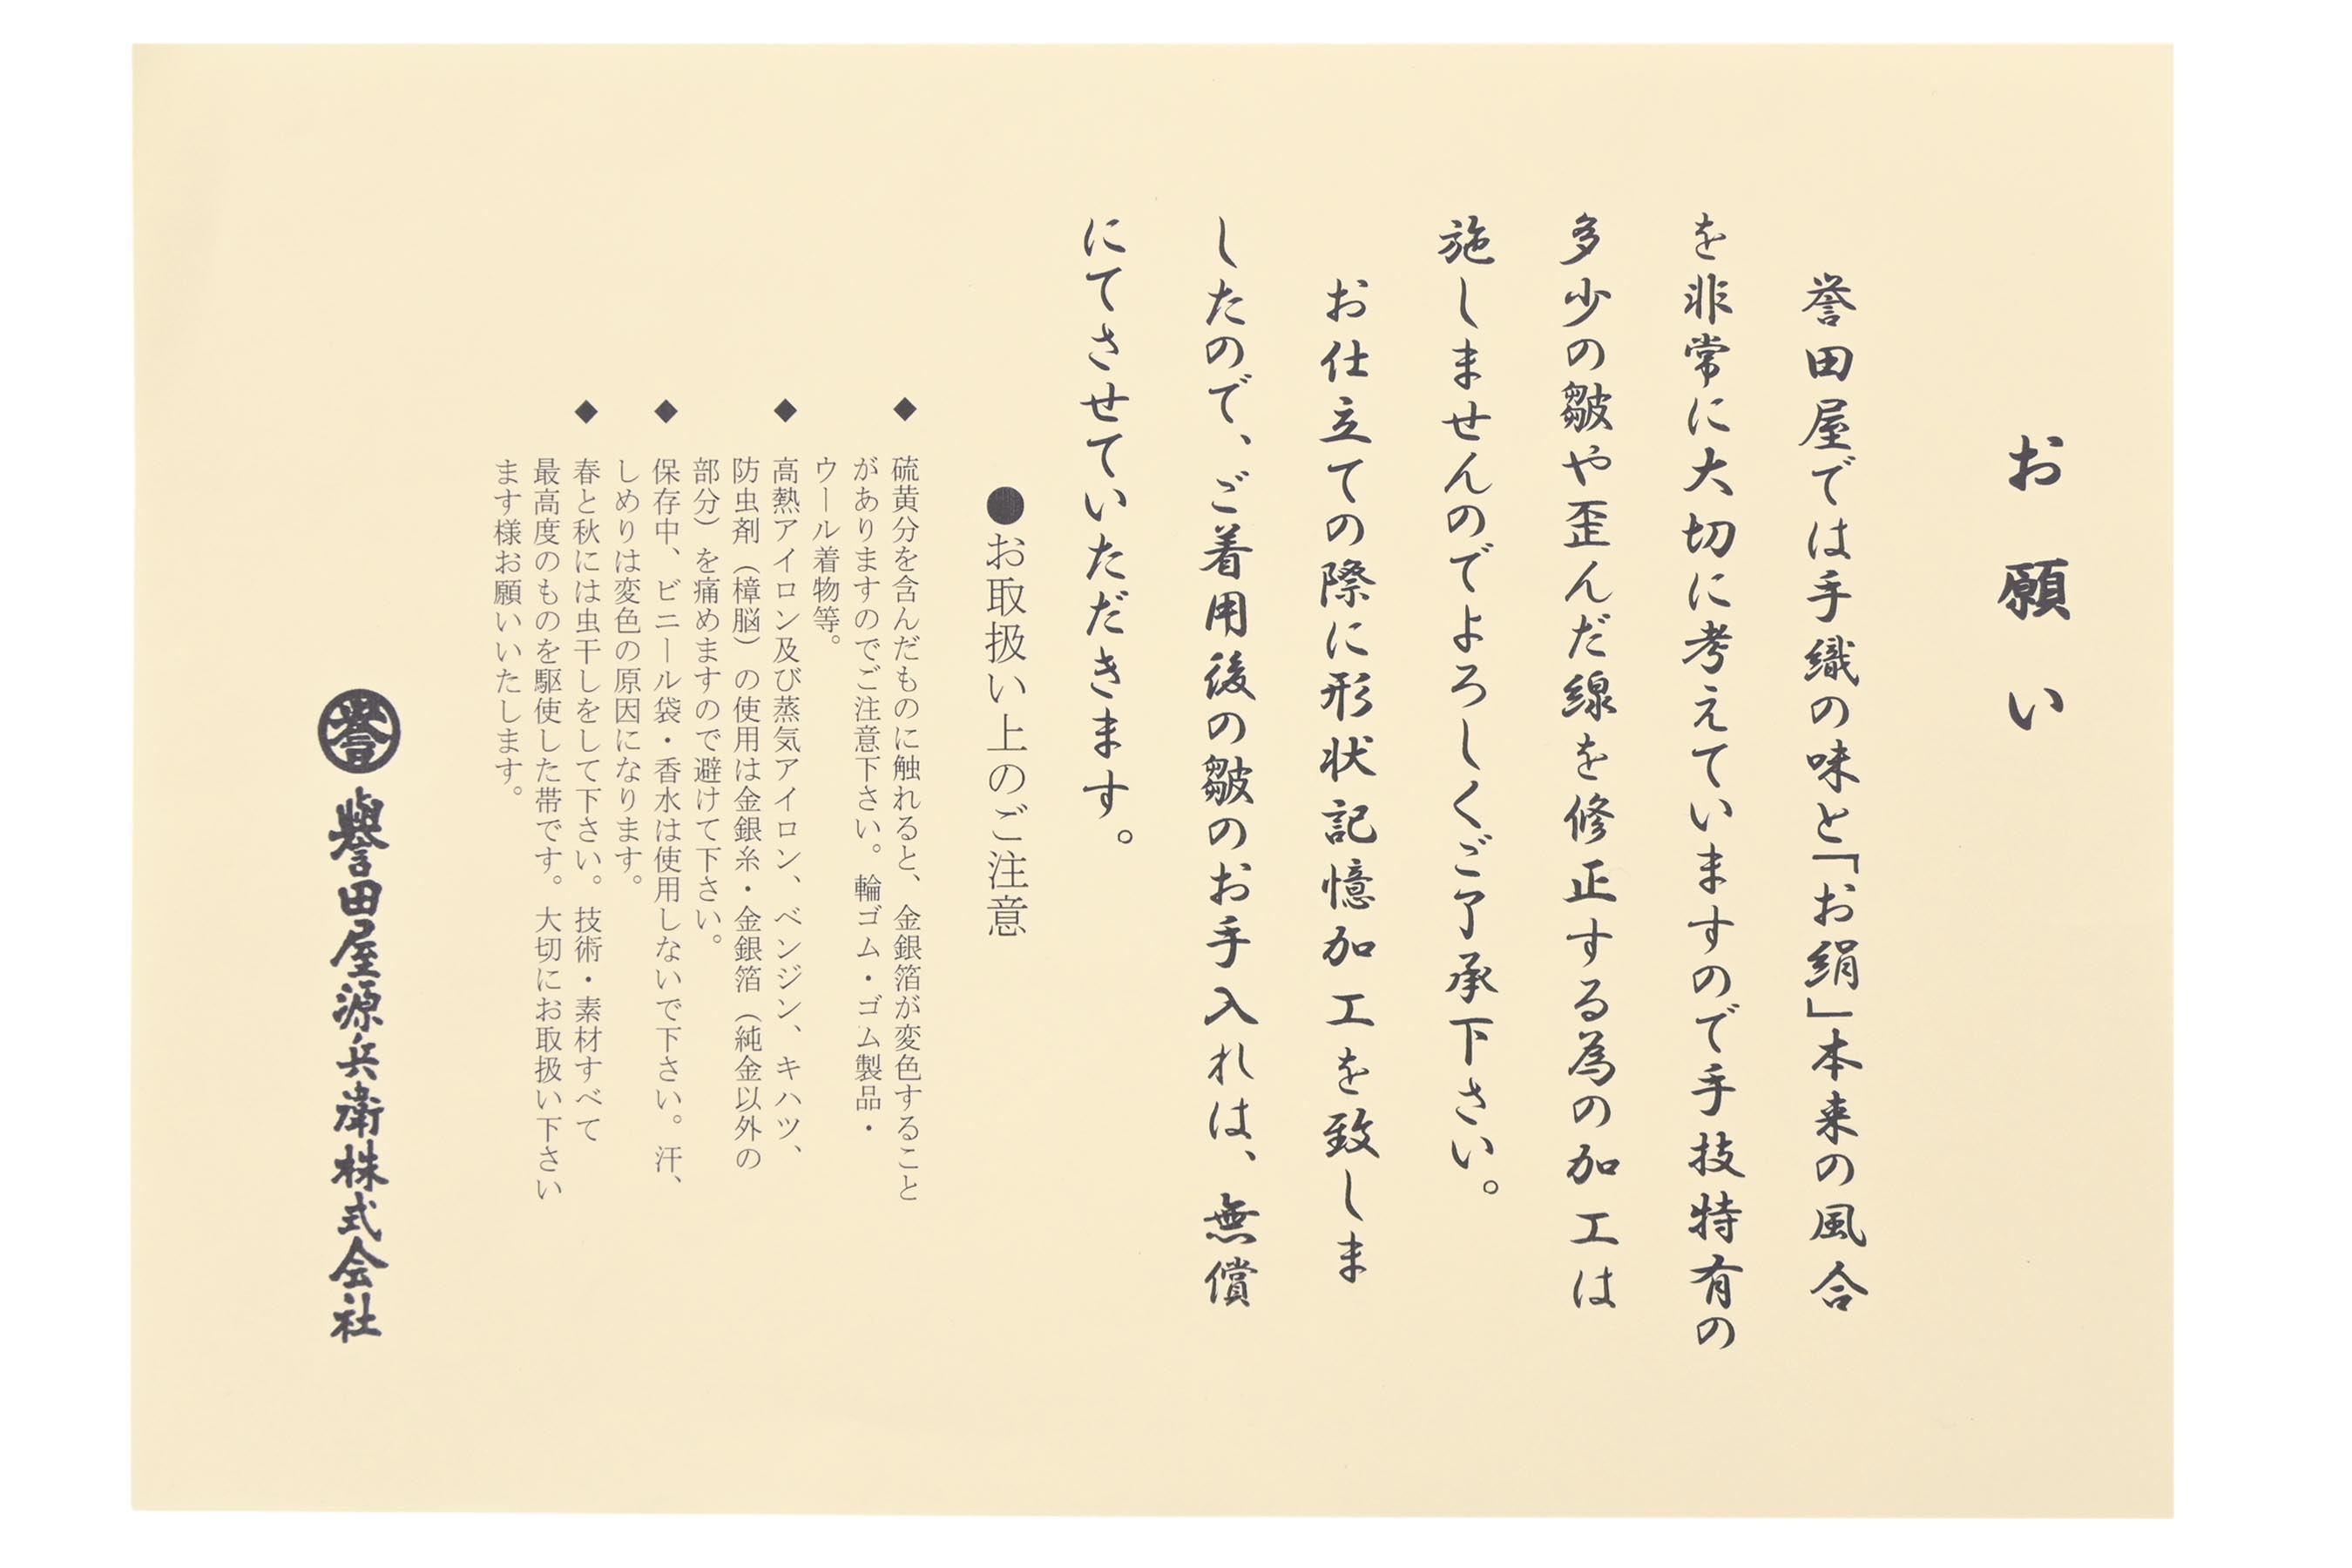 お願い
誉田屋では手織の味と「お絹」本来の風合
を非常に大切に考えていますので手技特有の
多少の皺や歪んだ線を修正する為の加工は
施しませんのでよろしくご了承下さい。
お仕立ての際に形状記憶加工を致しま
したので、ご着用後の皺のお手入れは、無償
にてさせていただきます。
●お取扱い上のご注意
◆ 硫黄分を含んだものに触れると、金銀箔が変色すること
がありますのでご注意下さい。輪ゴム・ゴム製品・
ウール着物等。
◆ 高熱アイロン及び蒸気アイロン、ベンジン、キハツ、
防虫剤（樟脳）の使用は金銀糸・金銀箔（純金以外の
部分）を痛めますので避けて下さい。
◆ 保存中、ビニール袋・香水は使用しないで下さい。汗、
しめりは変色の原因になります。
◆ 春と秋には虫干しをして下さい。技術・素材すべて
最高度のものを駆使した帯です。大切にお取扱い下さい
ます様お願いいたします。
誉 譽田屋源兵衛株式会社